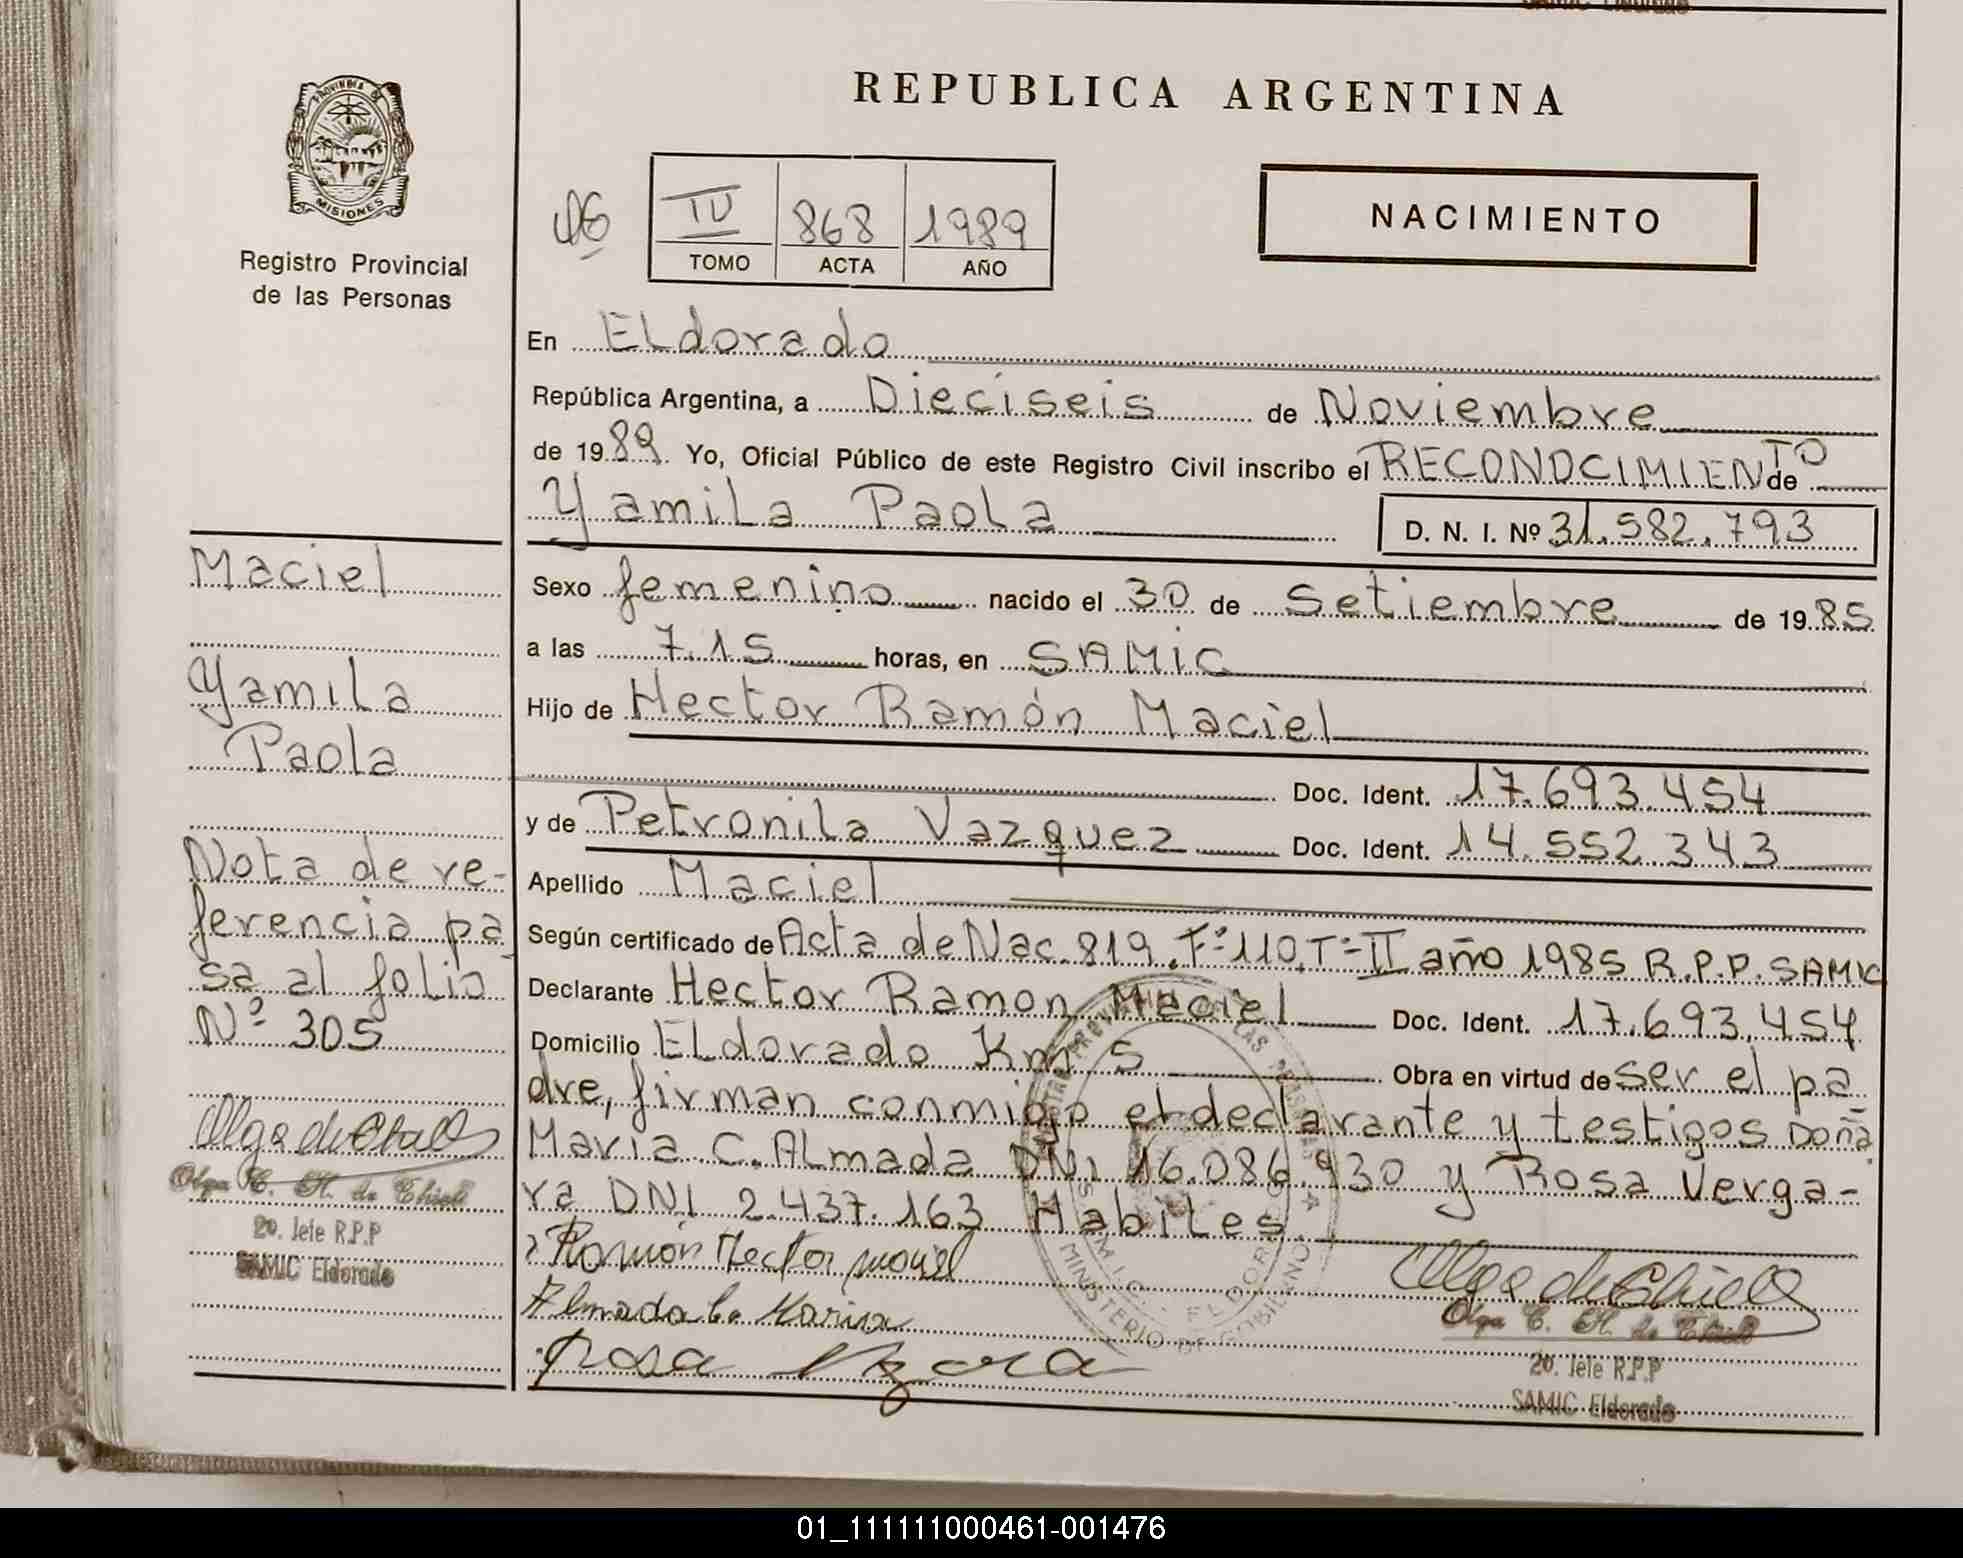 REPUBLICA ARGENTINA
PROVINCIA DE
MISIONES
Registro Provincial
de las Personas
IV 868 1989
TOMO ACTA AÑO
NACIMIENTO
En Eldorado
República Argentina, a Dieciseis de Noviembre
de 1989 Yo, Oficial Público de este Registro Civil inscribo el RECONOCIMIENTO de
Yamila Paola D. N. I. Nº 31.582.793
Sexo femenino nacido el 30 de Setiembre de 1985
a las 7.15 horas, en SAMIC
Hijo de Hector Ramón Maciel
Doc. Ident. 17.693.454
y de Petronila Vazquez Doc. Ident. 14.552.343
Apellido Maciel
Según certificado de Acta de Nac. 819. Fº 110. Tº II año 1985 R.P.P. SAMIC
Declarante Hector Ramon Maciel Doc. Ident. 17.693.454
Domicilio Eldorado Km 5 Obra en virtud de ser el pa
dre, firman conmigo el declarante y testigos Doña
Maria C. Almada DNI 16.086.930 y Rosa Verga-
ra DNI 2.437.163 Habiles
Ramón Hector Maciel
Almada Maria
Rosa
Olga de Thiele
Olga C. H. de Thiele
2o. Jefe R.P.P
SAMIC Eldorado
Maciel
Yamila
Paola
Nota de re-
ferencia pa
sa al folio
Nº 305
Olga de Thiele
Olga C. H. de Thiele
2o. Jefe R.P.P
SAMIC Eldorado
MINISTERIO DE GOBIERNO
01_111111000461-001476